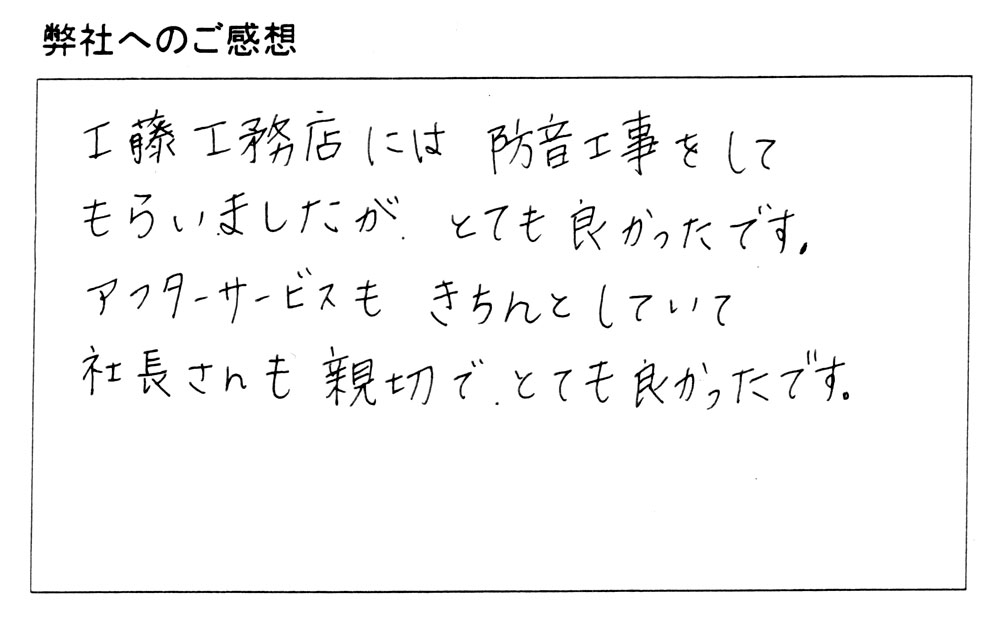 弊社へのご感想
工藤工務店には 防音工事をして
もらいましたが、とても良かったです。
アフターサービスも きちんとしていて
社長さんも 親切で、とても良かったです。